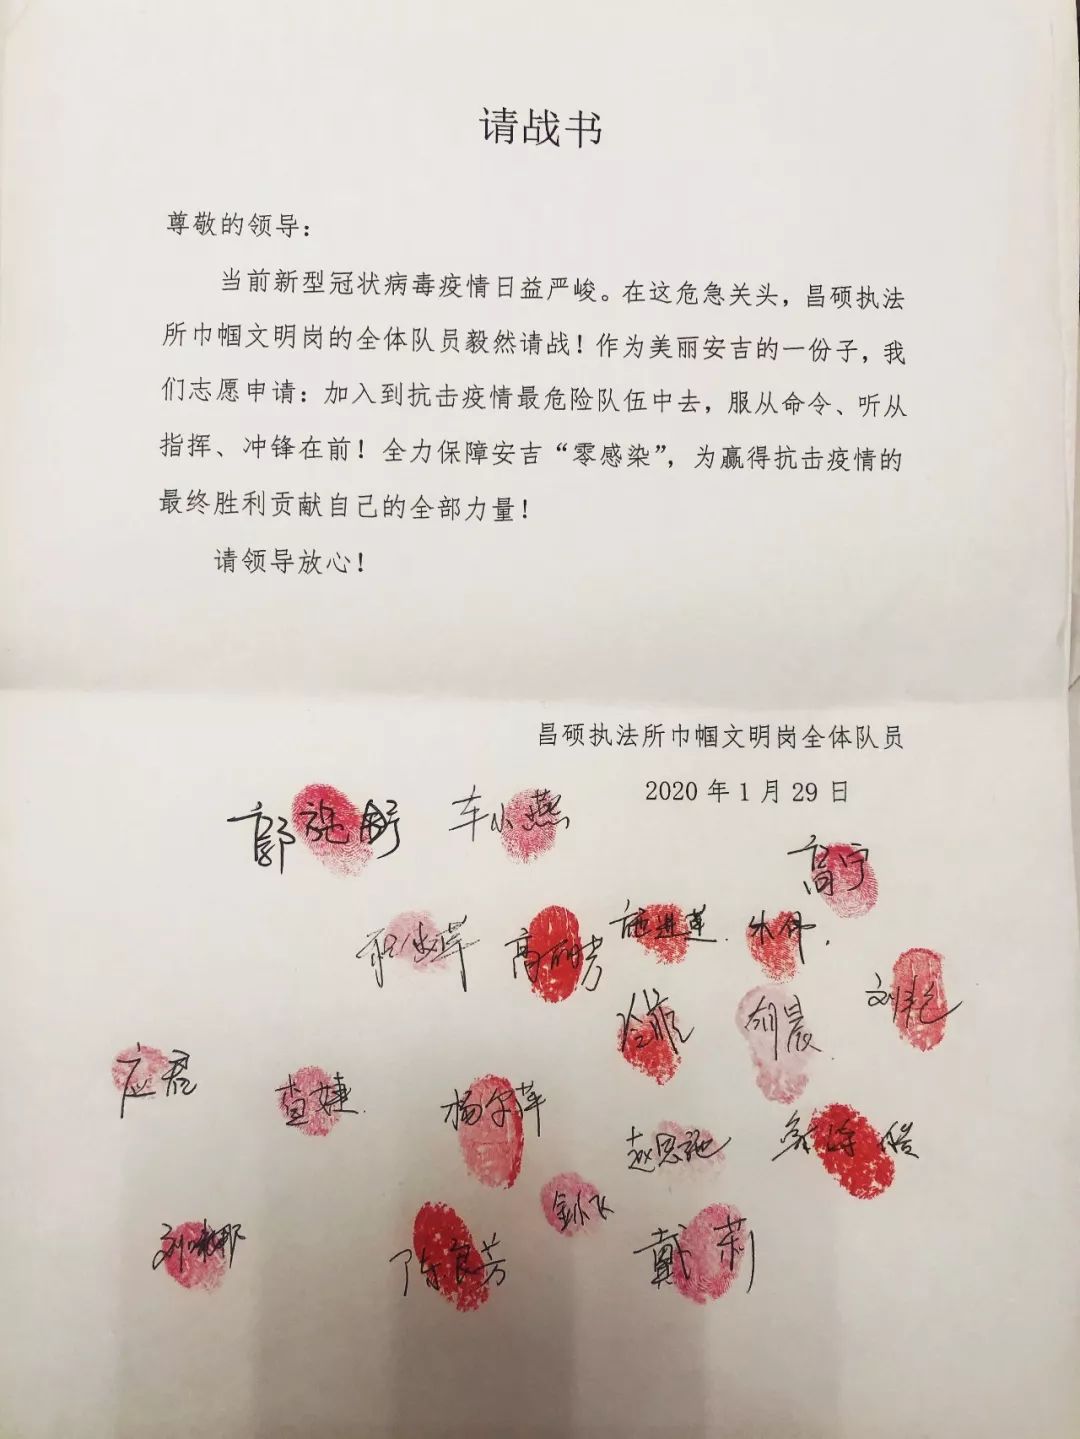 请战书
尊敬的领导：
当前新型冠状病毒疫情日益严峻。在这危急关头，昌硕执法
所巾帼文明岗的全体队员毅然请战！作为美丽安吉的一份子，我
们志愿申请：加入到抗击疫情最危险队伍中去，服从命令、听从
指挥、冲锋在前！全力保障安吉“零感染”，为赢得抗击疫情的
最终胜利贡献自己的全部力量！
请领导放心！
昌硕执法所巾帼文明岗全体队员
2020年1月29日
车小燕
高宁
高丽芳
施进莲
朱伟
刘艳
应君
查婕
杨尔萍
金小飞
刘娜
陈良芳
戴莉